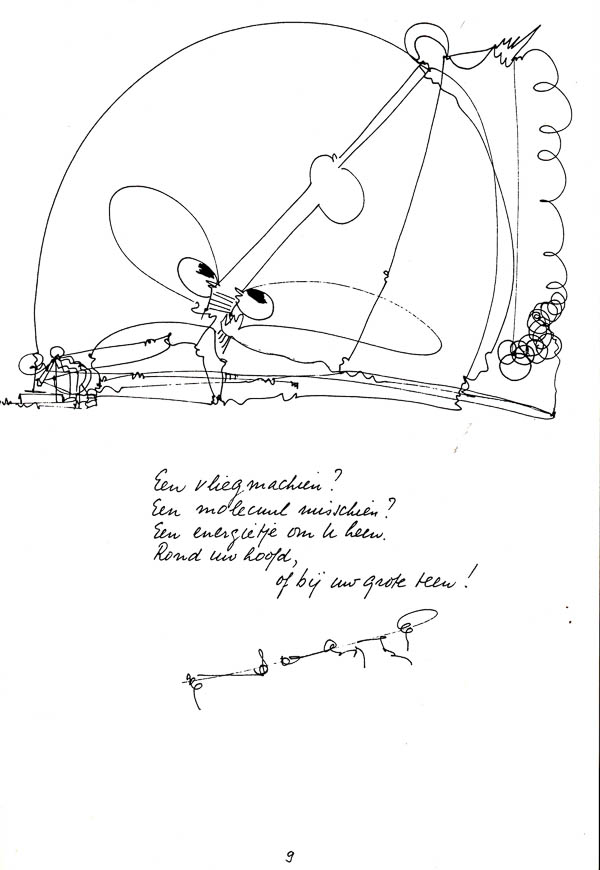 Een vliegmachien?
Een molecuul misschien?
Een energietje om U heen.
Rond uw hoofd,
of bij uw grote teen!
9